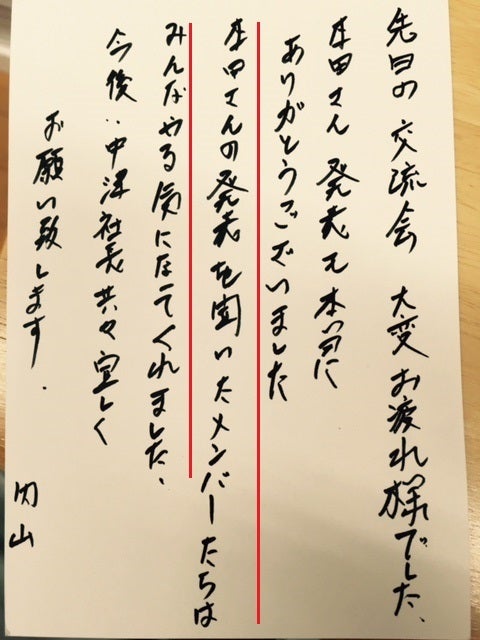 先日の交流会 大変お疲れ様でした、
本田さん 発表も本当に
ありがとうございました
本田さんの発表を聞いたメンバーたちは
みんなやる気になてくれました、
今後‥中澤社長共々宜しく
お願い致します.
内山